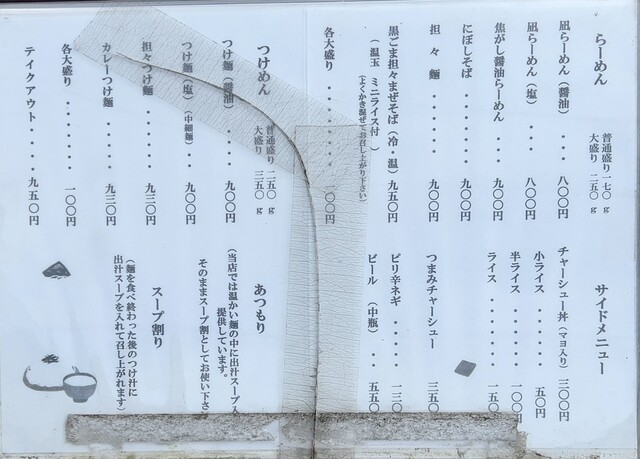 らーめん
普通盛り 一七〇g
大盛り 二五〇g
凪らーめん（醤油）・・・八〇〇円
凪らーめん（塩）・・・八〇〇円
焦がし醤油らーめん・・・九〇〇円
にぼしそば・・・・・九〇〇円
担々麺・・・・・・九〇〇円
黒ごま担々まぜそば（冷・温）九五〇円
（温玉 ミニライス付）
（よくかき混ぜてお召し上がり下さい）
各大盛り・・・・・・・一〇〇円
つけめん
普通盛り 二五〇g
大盛り 三五〇g
つけ麺（醤油）・・・・九〇〇円
つけ麺（塩）（中細麺）・・九〇〇円
担々つけ麺・・・・・九三〇円
カレーつけ麺・・・・九三〇円
各大盛り・・・・・・・一〇〇円
テイクアウト・・・・九五〇円
サイドメニュー
チャーシュー丼（マヨ入り）三〇〇円
小ライス・・・・・・五〇円
半ライス・・・・・・一〇〇円
ライス・・・・・・・一五〇
つまみチャーシュー 三五〇
ピリ辛ネギ・・・一三〇
ビール（中瓶）・・五五〇
あつもり
（当店では温かい麺の中に出汁スープ入
提供しています。
そのままスープ割としてお使い下さ
スープ割り
（麺を食べ終わった後のつけ汁に
出汁スープを入れて召し上がれます）